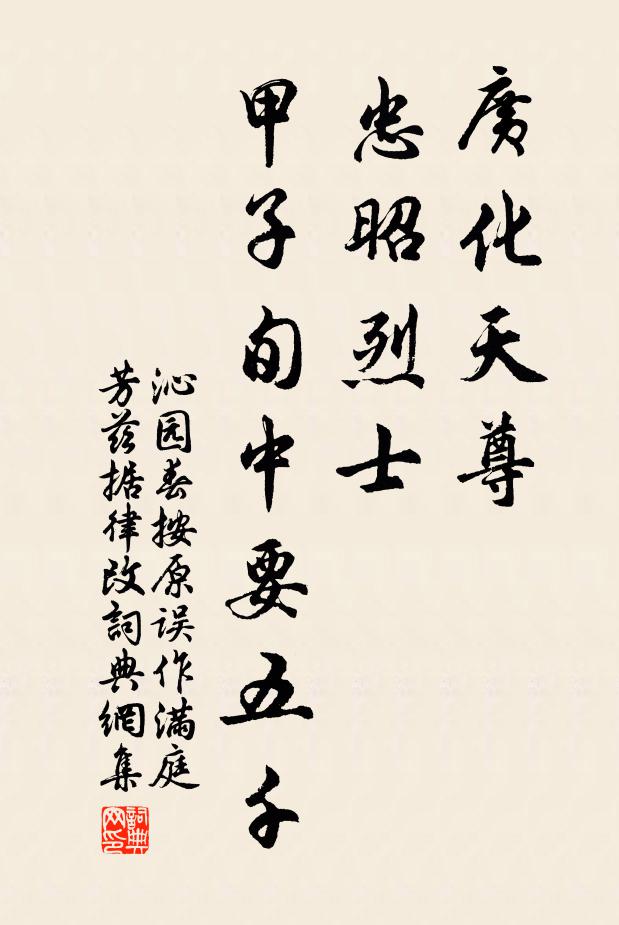 廣化天尊
忠昭烈士
甲子旬中要五千
沁园春按原误作满庭
芳兹据律改詞典網集
詞典網印